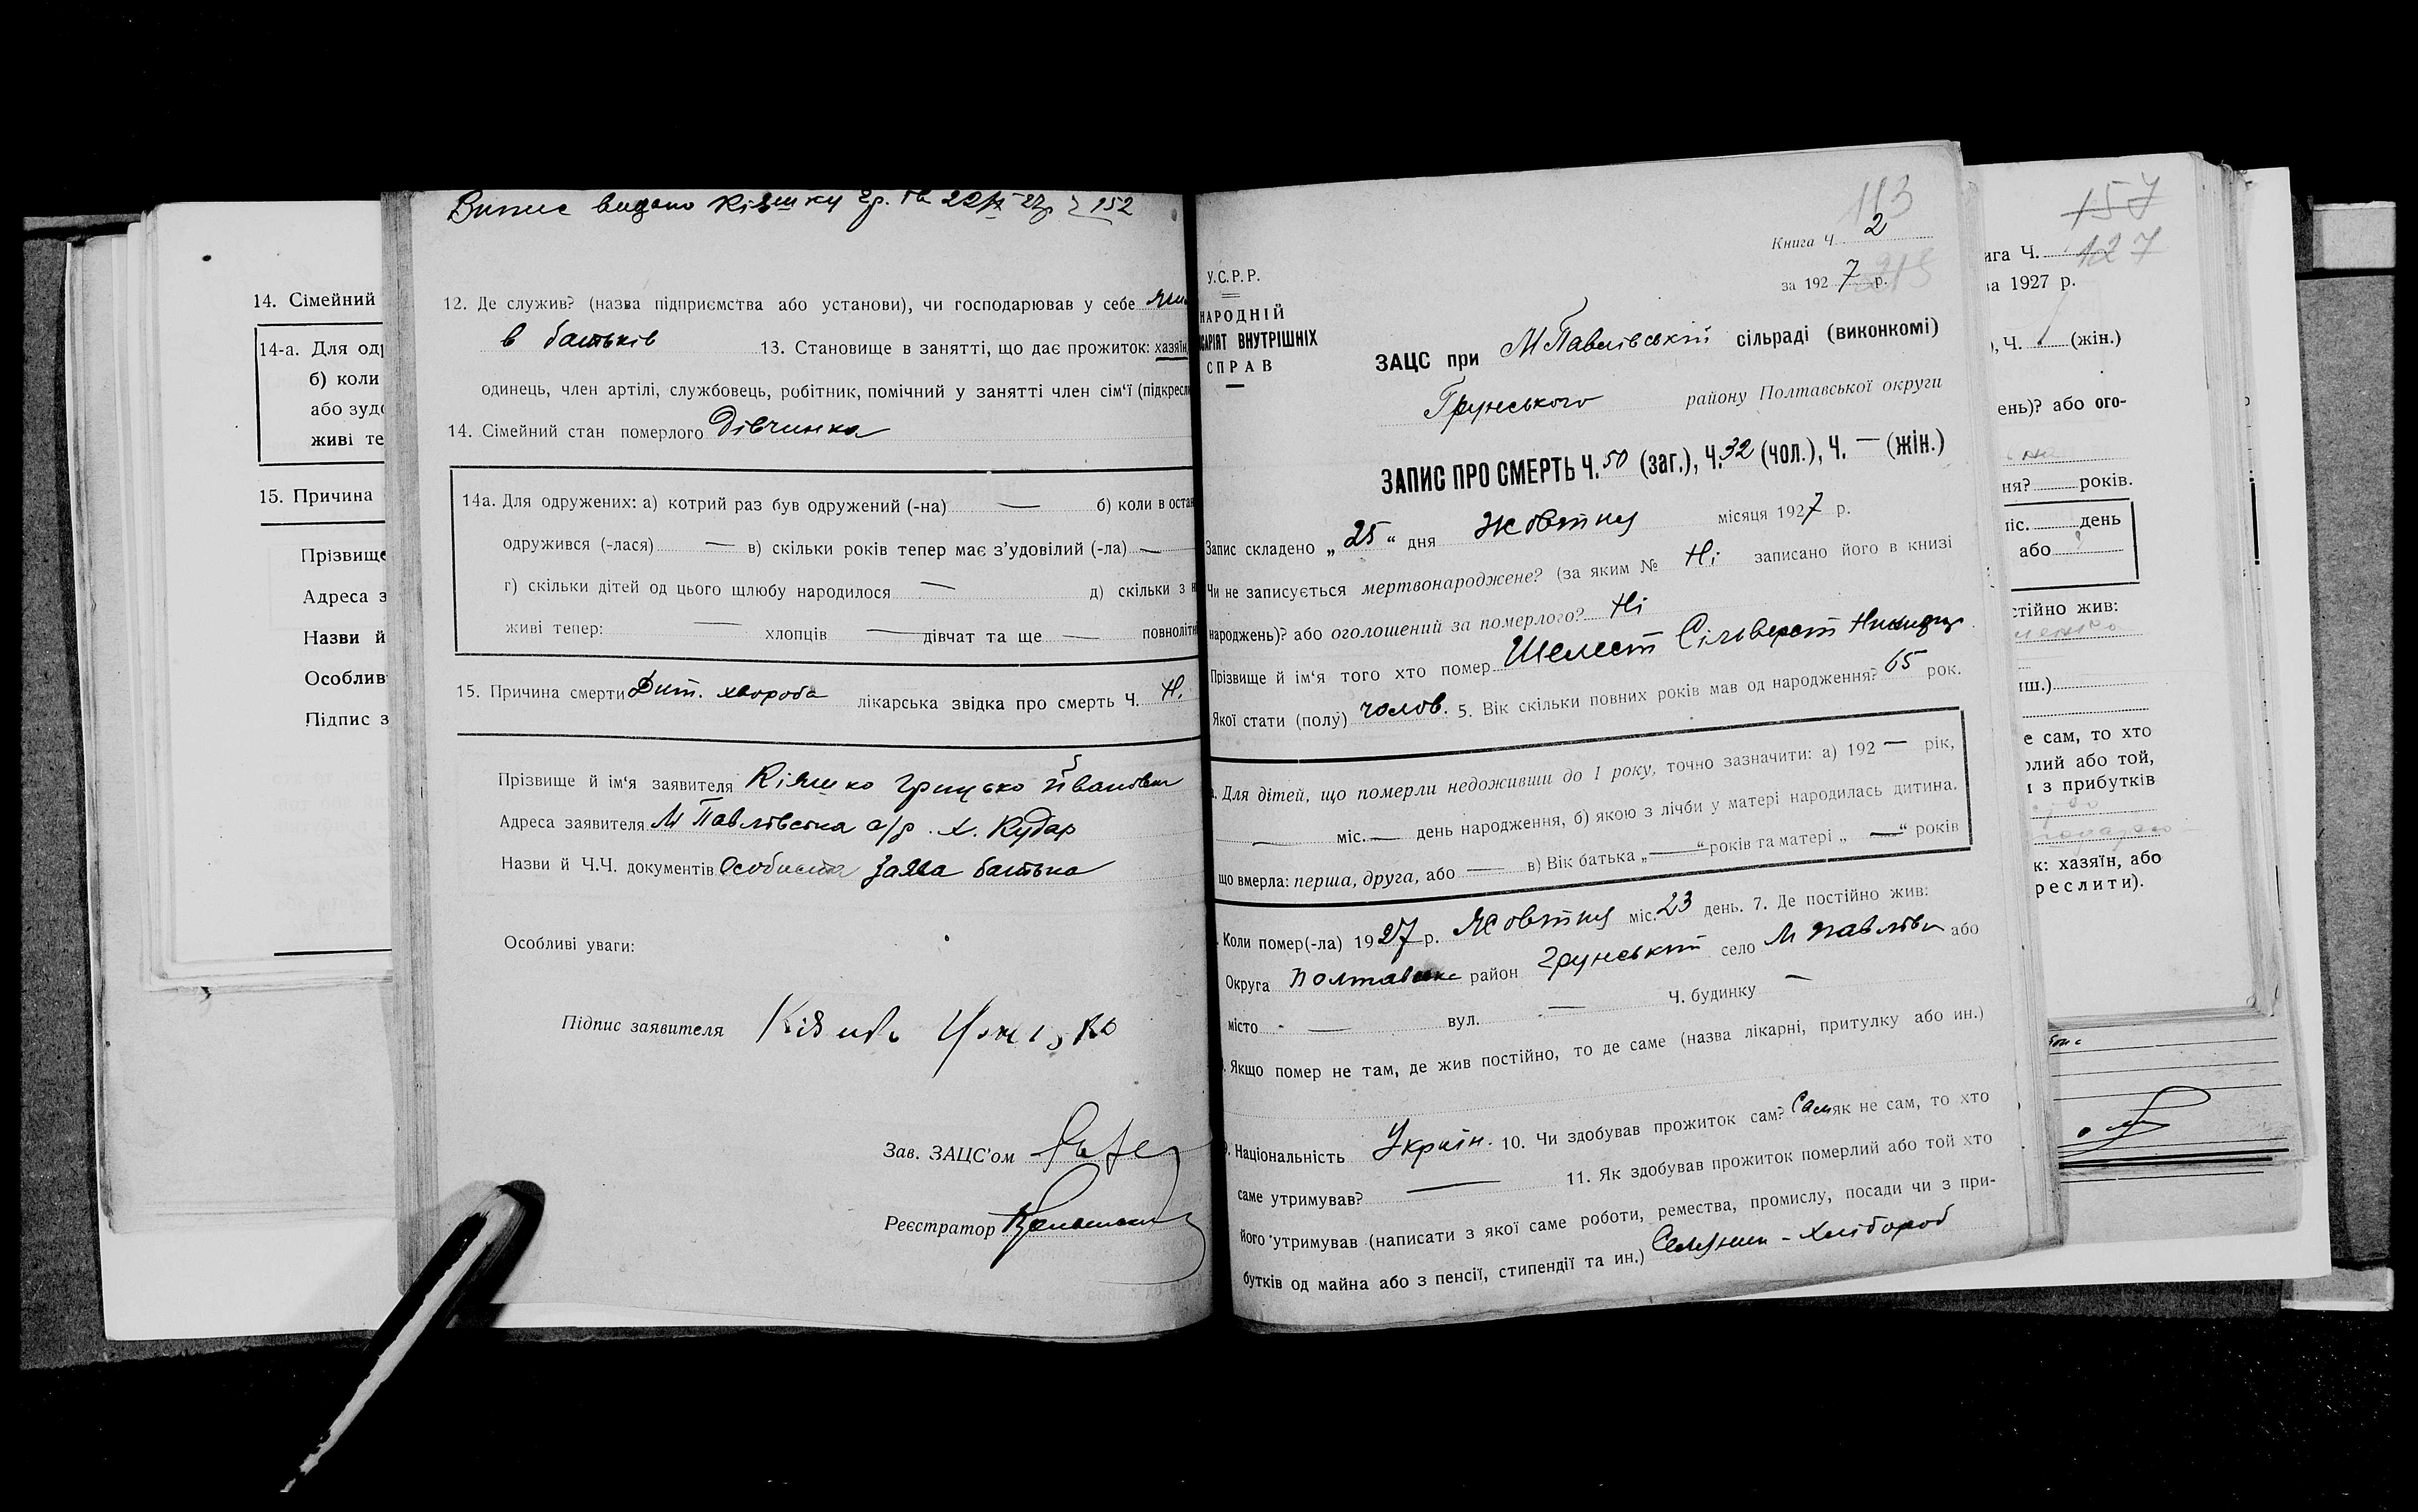 14. Сімейний
14-а. Для од
б) коли
або зудо
живі те
15. Причина
Прізвище
Адреса з
Назви й
Особлив
Підпис з
Випис видано Кіяшку гр. 152
12. Де служив? (назва підприємства або установи), чи господарював у себе
в батьків 13. Становище в занятті, що дає прожиток: хазяїн,
одинець, член артілі, службовець, робітник, помічний у занятті член сім‘ї (підкресл
14. Сімейний стан померлого Дівчинка
14а. Для одружених: а) котрий раз був одружений (-на) — б) коли в остан
одружився (-лася) — в) скільки років тепер має з’удовілий (-ла) —
г) скільки дітей од цього щлюбу народилося — д) скільки з н
живі тепер: — хлопців — дівчат та ще — повноліт
15. Причина смерти Дит. хвороба лікарська звідка про смерть Ч. Н.
Прізвище й ім‘я заявителя Кіяшко Грицько Йванович
Адреса заявителя М Павлівська с/р. х. Кудар
Назви й Ч.Ч. документів Особиста заява батька
Особливі уваги:
Підпис заявителя
Зав. ЗАЦС’ом
Реєстратор
113
Книга Ч. 2
215
за 1927 р.
У.С.Р.Р.
НАРОДНІЙ
САРІЯТ ВНУТРІШНІХ
СПРАВ
ЗАЦС при М Павлівській сільраді (виконкомі)
Грунського району Полтавської округи
ЗАПИС ПРО СМЕРТЬ Ч. 50 (заг.), Ч. 32 (чол.), Ч. — (жін.)
Запис складено „25“ дня Жовтня місяця 1927 р.
Чи не записується мертвонароджене? (за яким № Ні записано його в книзі
народжень)? або оголошений за померлого? Ні
Прізвище й ім‘я того хто помер Шелест Сільверст
Якої стати (полу) чолов. 5. Вік скільки повних років мав од народження? 65 рок.
Для дітей, що померли недоживши до 1 року, точно зазначити: а) 192 — рік,
— міс. — день народження, б) якою з лічби у матері народилась дитина.
що вмерла: перша, друга, або — в) Вік батька „—“ років та матері „—“ років
Коли помер(-ла) 1927 р. Жовтня міс. 23 день. 7. Де постійно жив:
Округа Полтавська район Грунський село М Павлівка або
місто — вул. — Ч. будинку —
Якщо помер не там, де жив постійно, то де саме (назва лікарні, притулку або ин.)
9. Національність Україн. 10. Чи здобував прожиток сам? Сам як не сам, то хто
саме утримував? — 11. Як здобував прожиток померлий або той хто
його утримував (написати з якої саме роботи, ремества, промислу, посади чи з при-
бутків од майна або з пенсії, стипендії та ин.) Селянин - хлібороб
157
127
ига Ч.
за 1927 р.
), Ч. (жін.)
ень)? або ого-
ня? років.
міс. день
або
стійно жив:
иш.)
е сам, то хто
олий або той,
и з прибутків
к: хазяїн, або
реслити).